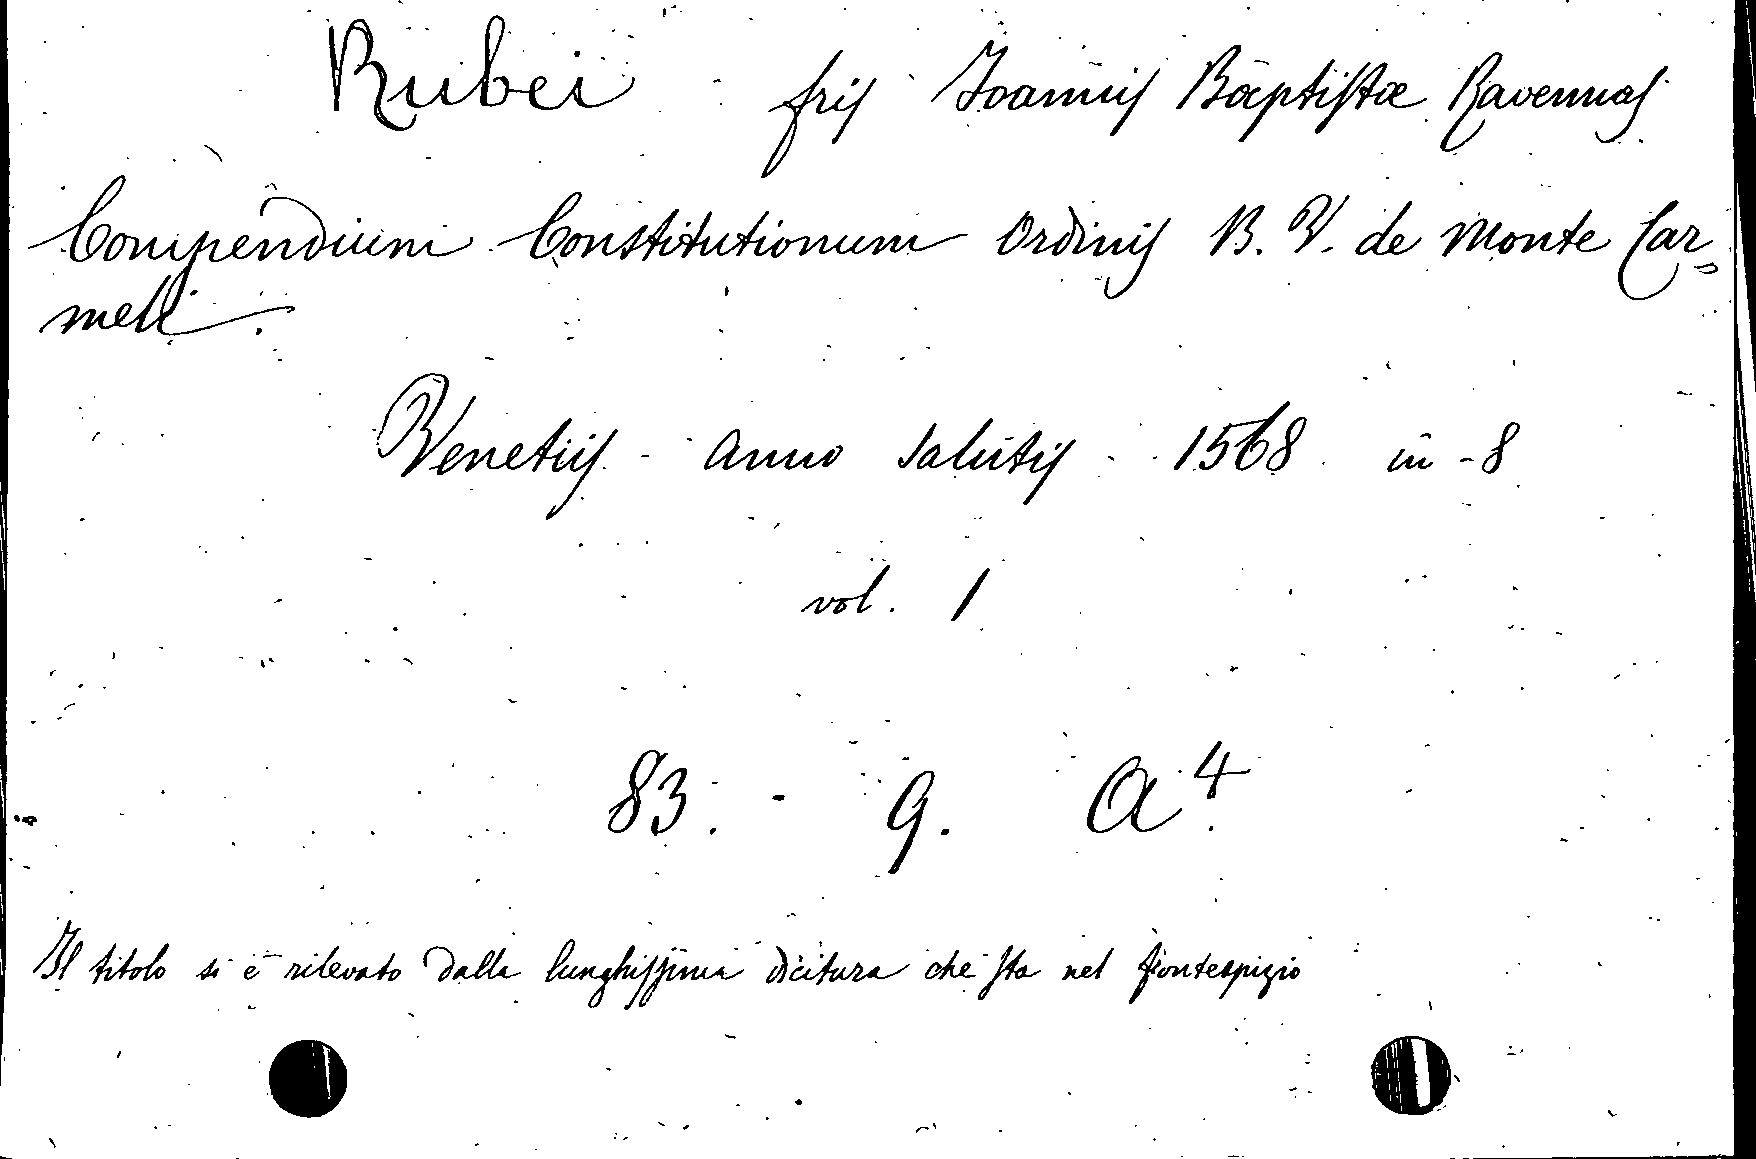 Rubei fris Joannis Baptistæ Ravennas
Compendium Constitutionum Ordinis B. V. de Monte Car=
meli.
Venetiis - Anno salutis 1568 in - 8
vol. 1
83. - 9. A 4.
Il titolo si è rilevato dalla lunghissima dicitura che sta nel frontespizio